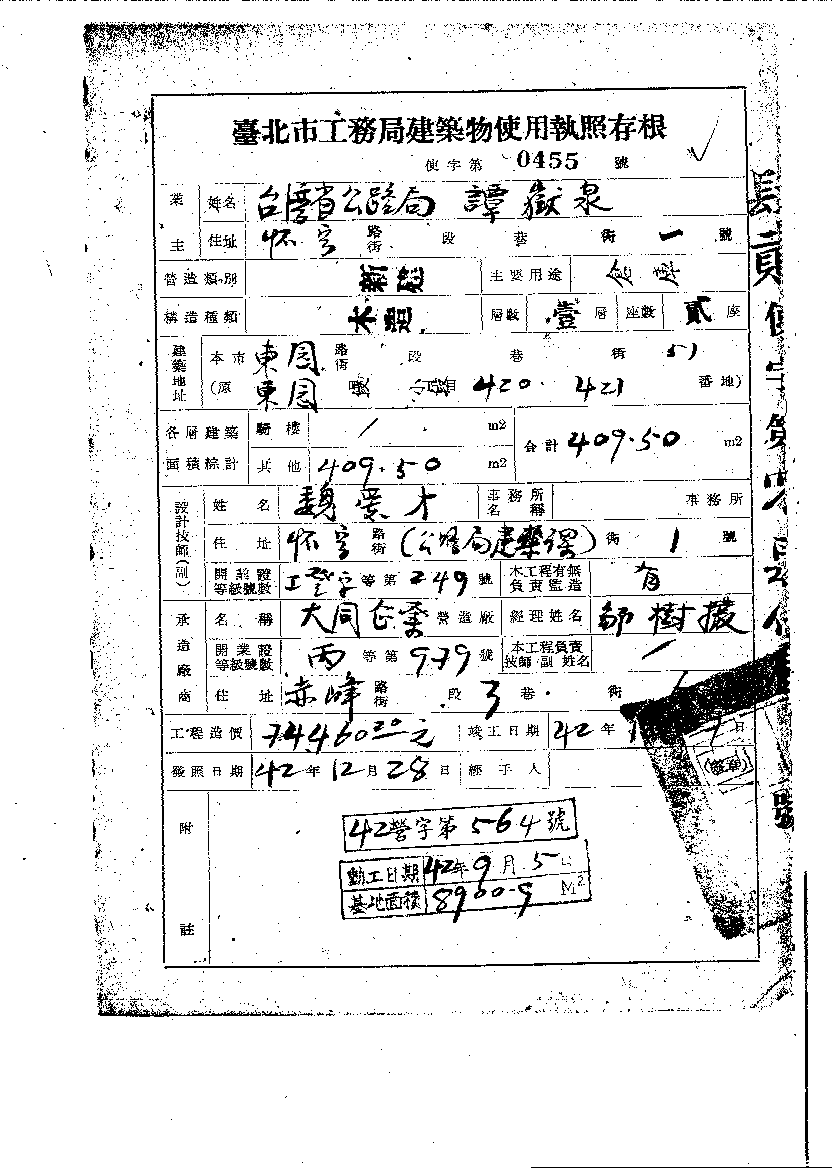 臺北市工務局建築物使用執照存根
使字第 0455 號
業主 姓名 台灣省公路局 譚嶽泉
住址 怀寧 路街 段 巷 街 一 號
營造類別 新建 主要用途 倉庫
構造種類 木造 層數 壹 層 座數 貳 座
建築地址 本市 東园 路街 段 巷 街 51
(原 東园 段 420. 421 番地)
各層建築面積綜計 騎樓 / m2 合計 409.50 m2
其他 409.50 m2
設計技師(副) 姓名 魏 才 事務所名稱 事務所
住址 怀寧 路街 (公路局建築課) 街 1 號
開業證等級號數 工登字 等第 249 號 本工程有無負責監造 有
承造廠商 名稱 大同企業 營造廠 經理姓名 樹
開業證等級號數 丙 等第 979 號 本工程負責技師·副 姓名 /
住址 赤峰 路街 段 3 巷 街
工程造價 74460.20 元 竣工日期 42 年 日
發照日期 42 年 12 月 28 日 經手人 (簽章)
附註
42營字第564號
動工日期 42年9月5日
基地面積 8900.9 M2